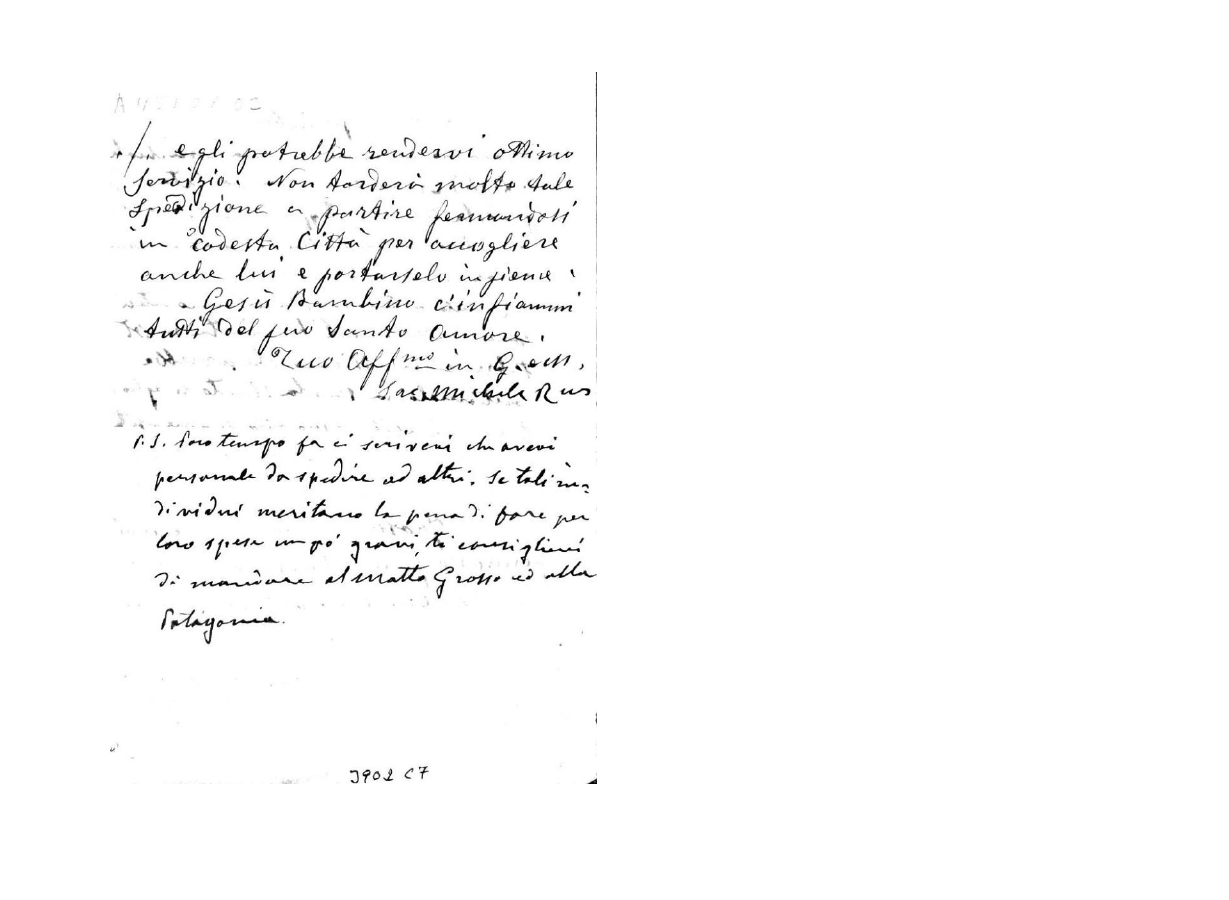 ./. egli potrebbe rendervi ottimo
servizio. Non tarderà molto tale
spedizione a partire fermandosi
in codesta Città per accogliere
anche lui e portarselo insieme.
Gesù Bambino c'infiammi
tutti del suo Santo Amore.
Tuo Aff.mo in G. e M.
Sac. Michele Rua
P.S. Poco tempo fa ci scrivevi che avevi
personale da spedire ad altri. Se tali in=
dividui meritano la pena di fare per
loro spese un po' gravi, ti consiglierei
di mandare al Matto Grosso ed alla
Patagonia.
3902 C7